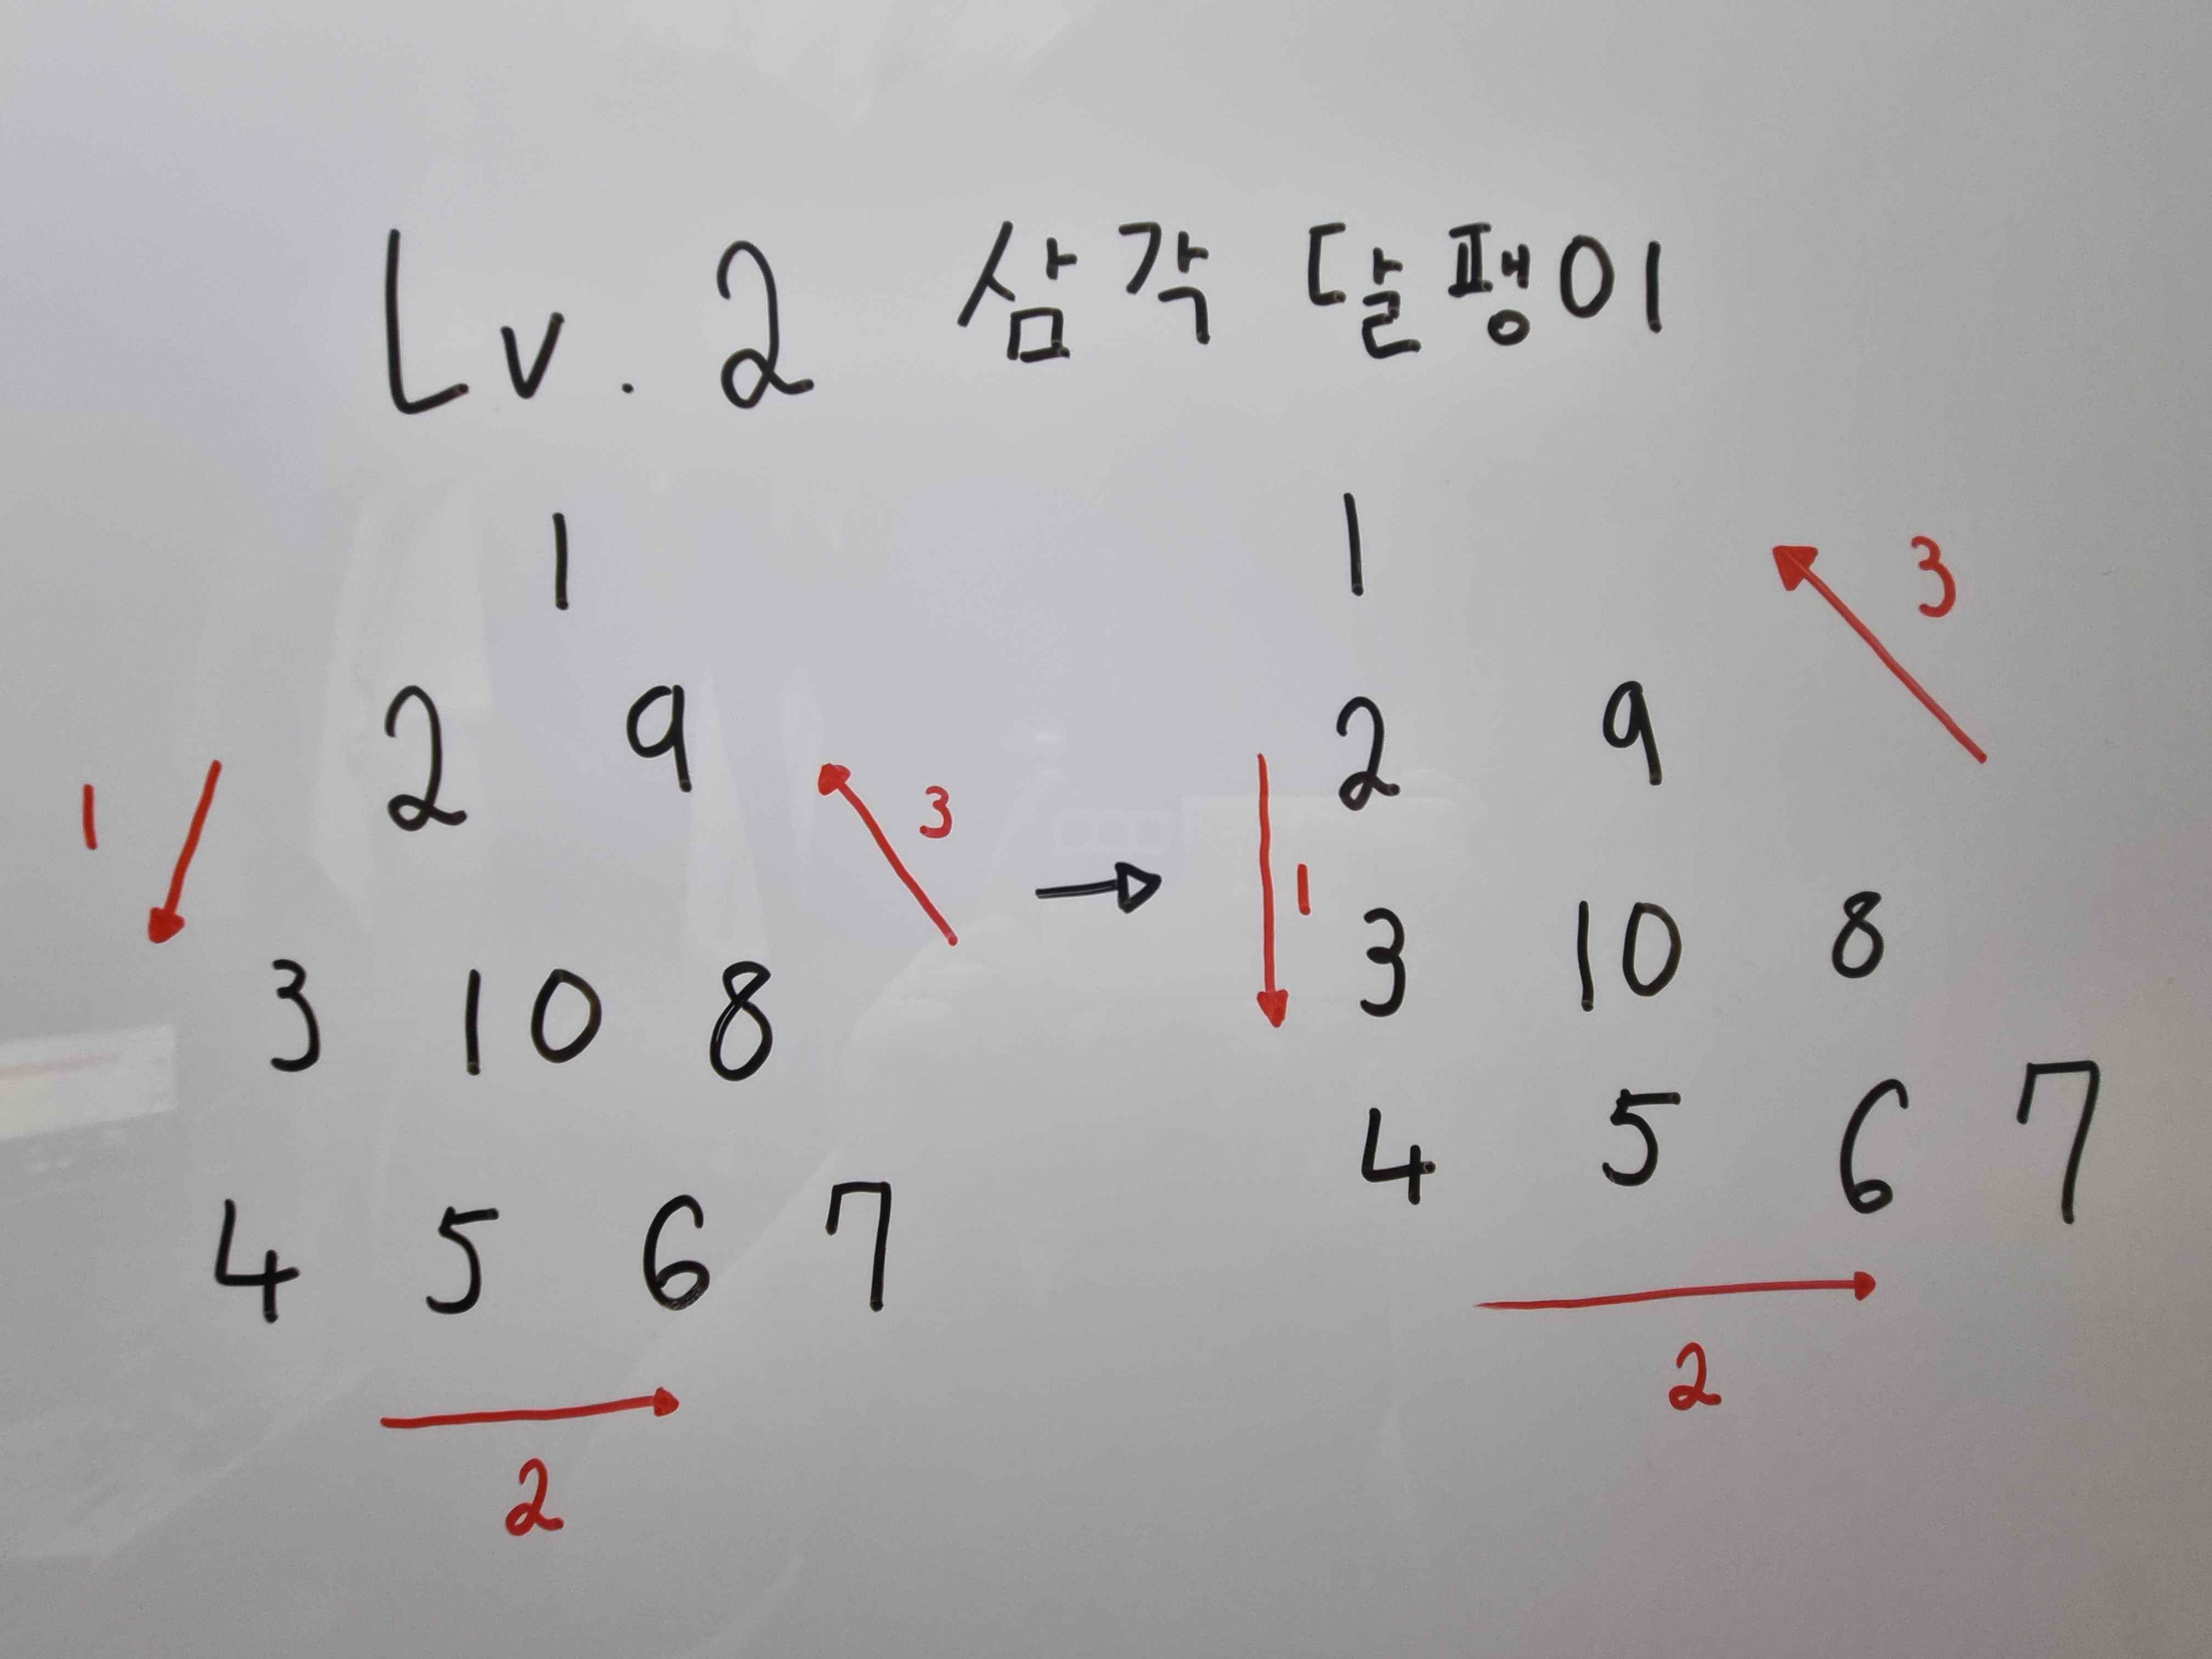 Lv. 2 삼각 달팽이
1
2 9
1 3
3 10 8
4 5 6 7
2
1
3
2 9
1
3 10 8
4 5 6 7
2